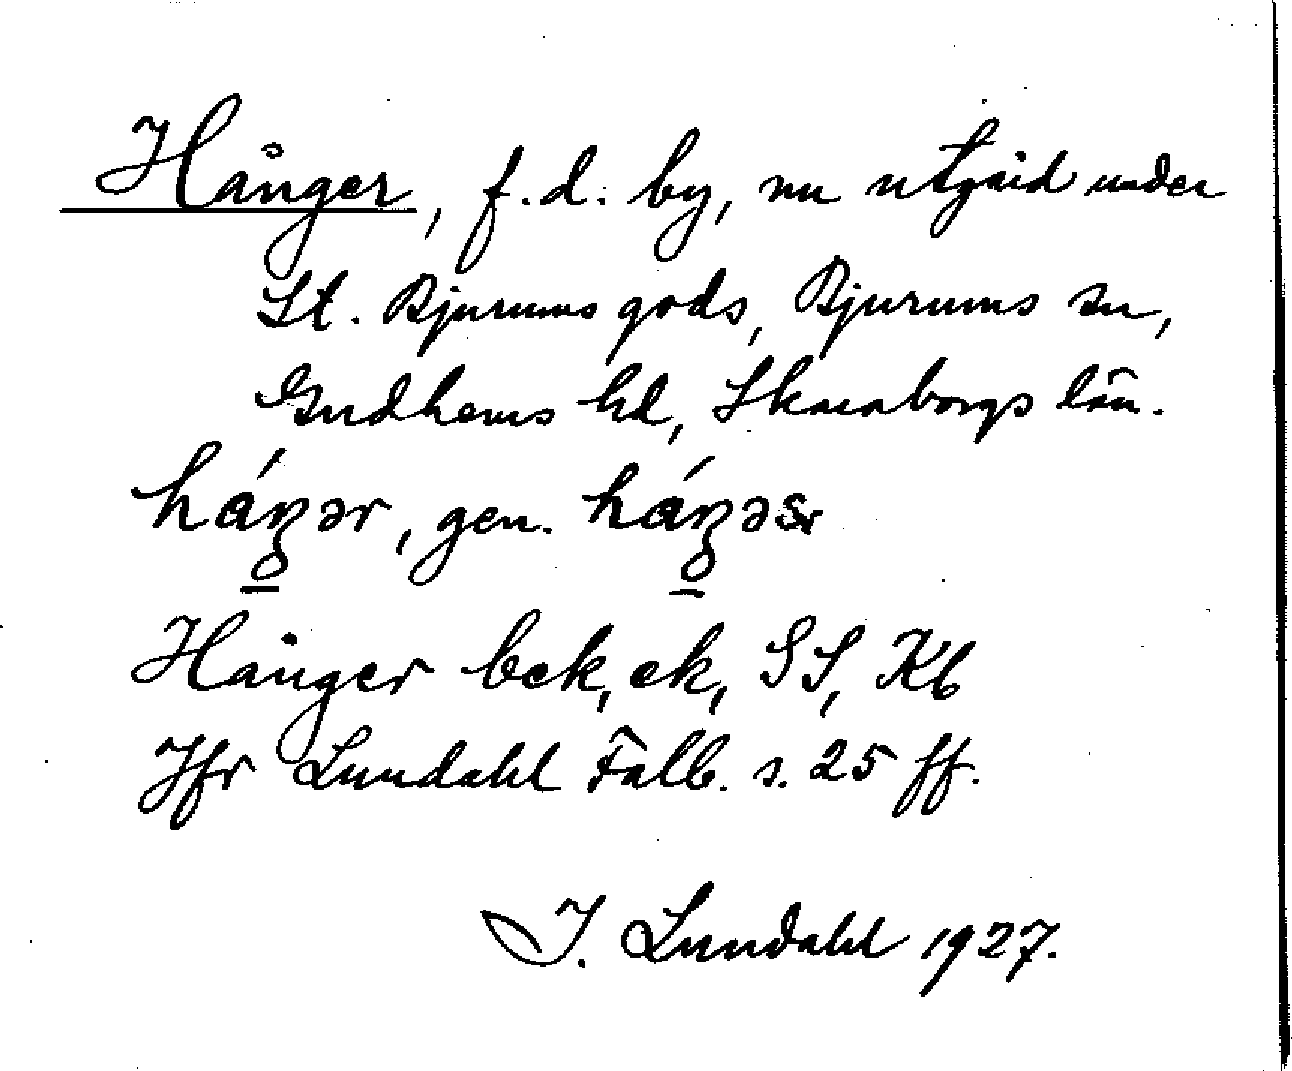 Hånger, f.d. by, nu utgård under
St. Bjurums gods, Bjurums sn,
Gudhems hd, Skaraborgs län.
gen.
Hånger bek, ek, SS, Kb
Jfr Lundahl Falb. s. 25 ff.
I. Lundahl 1927.